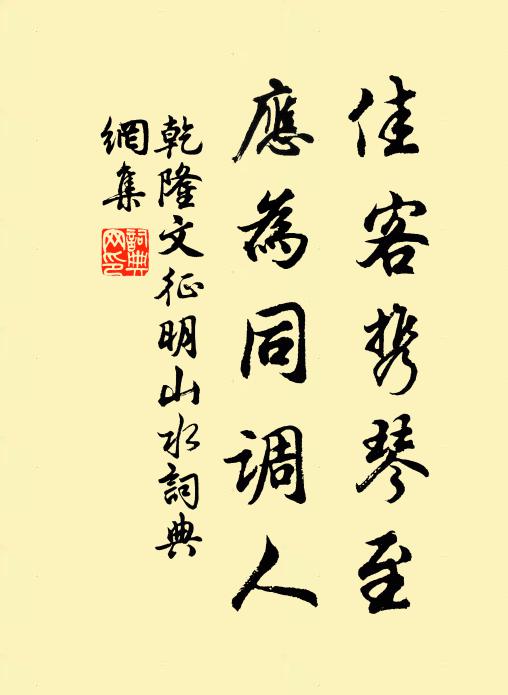 佳客携琴至
應為同调人
乾隆文征明山水詞典
網集
詞典
网印